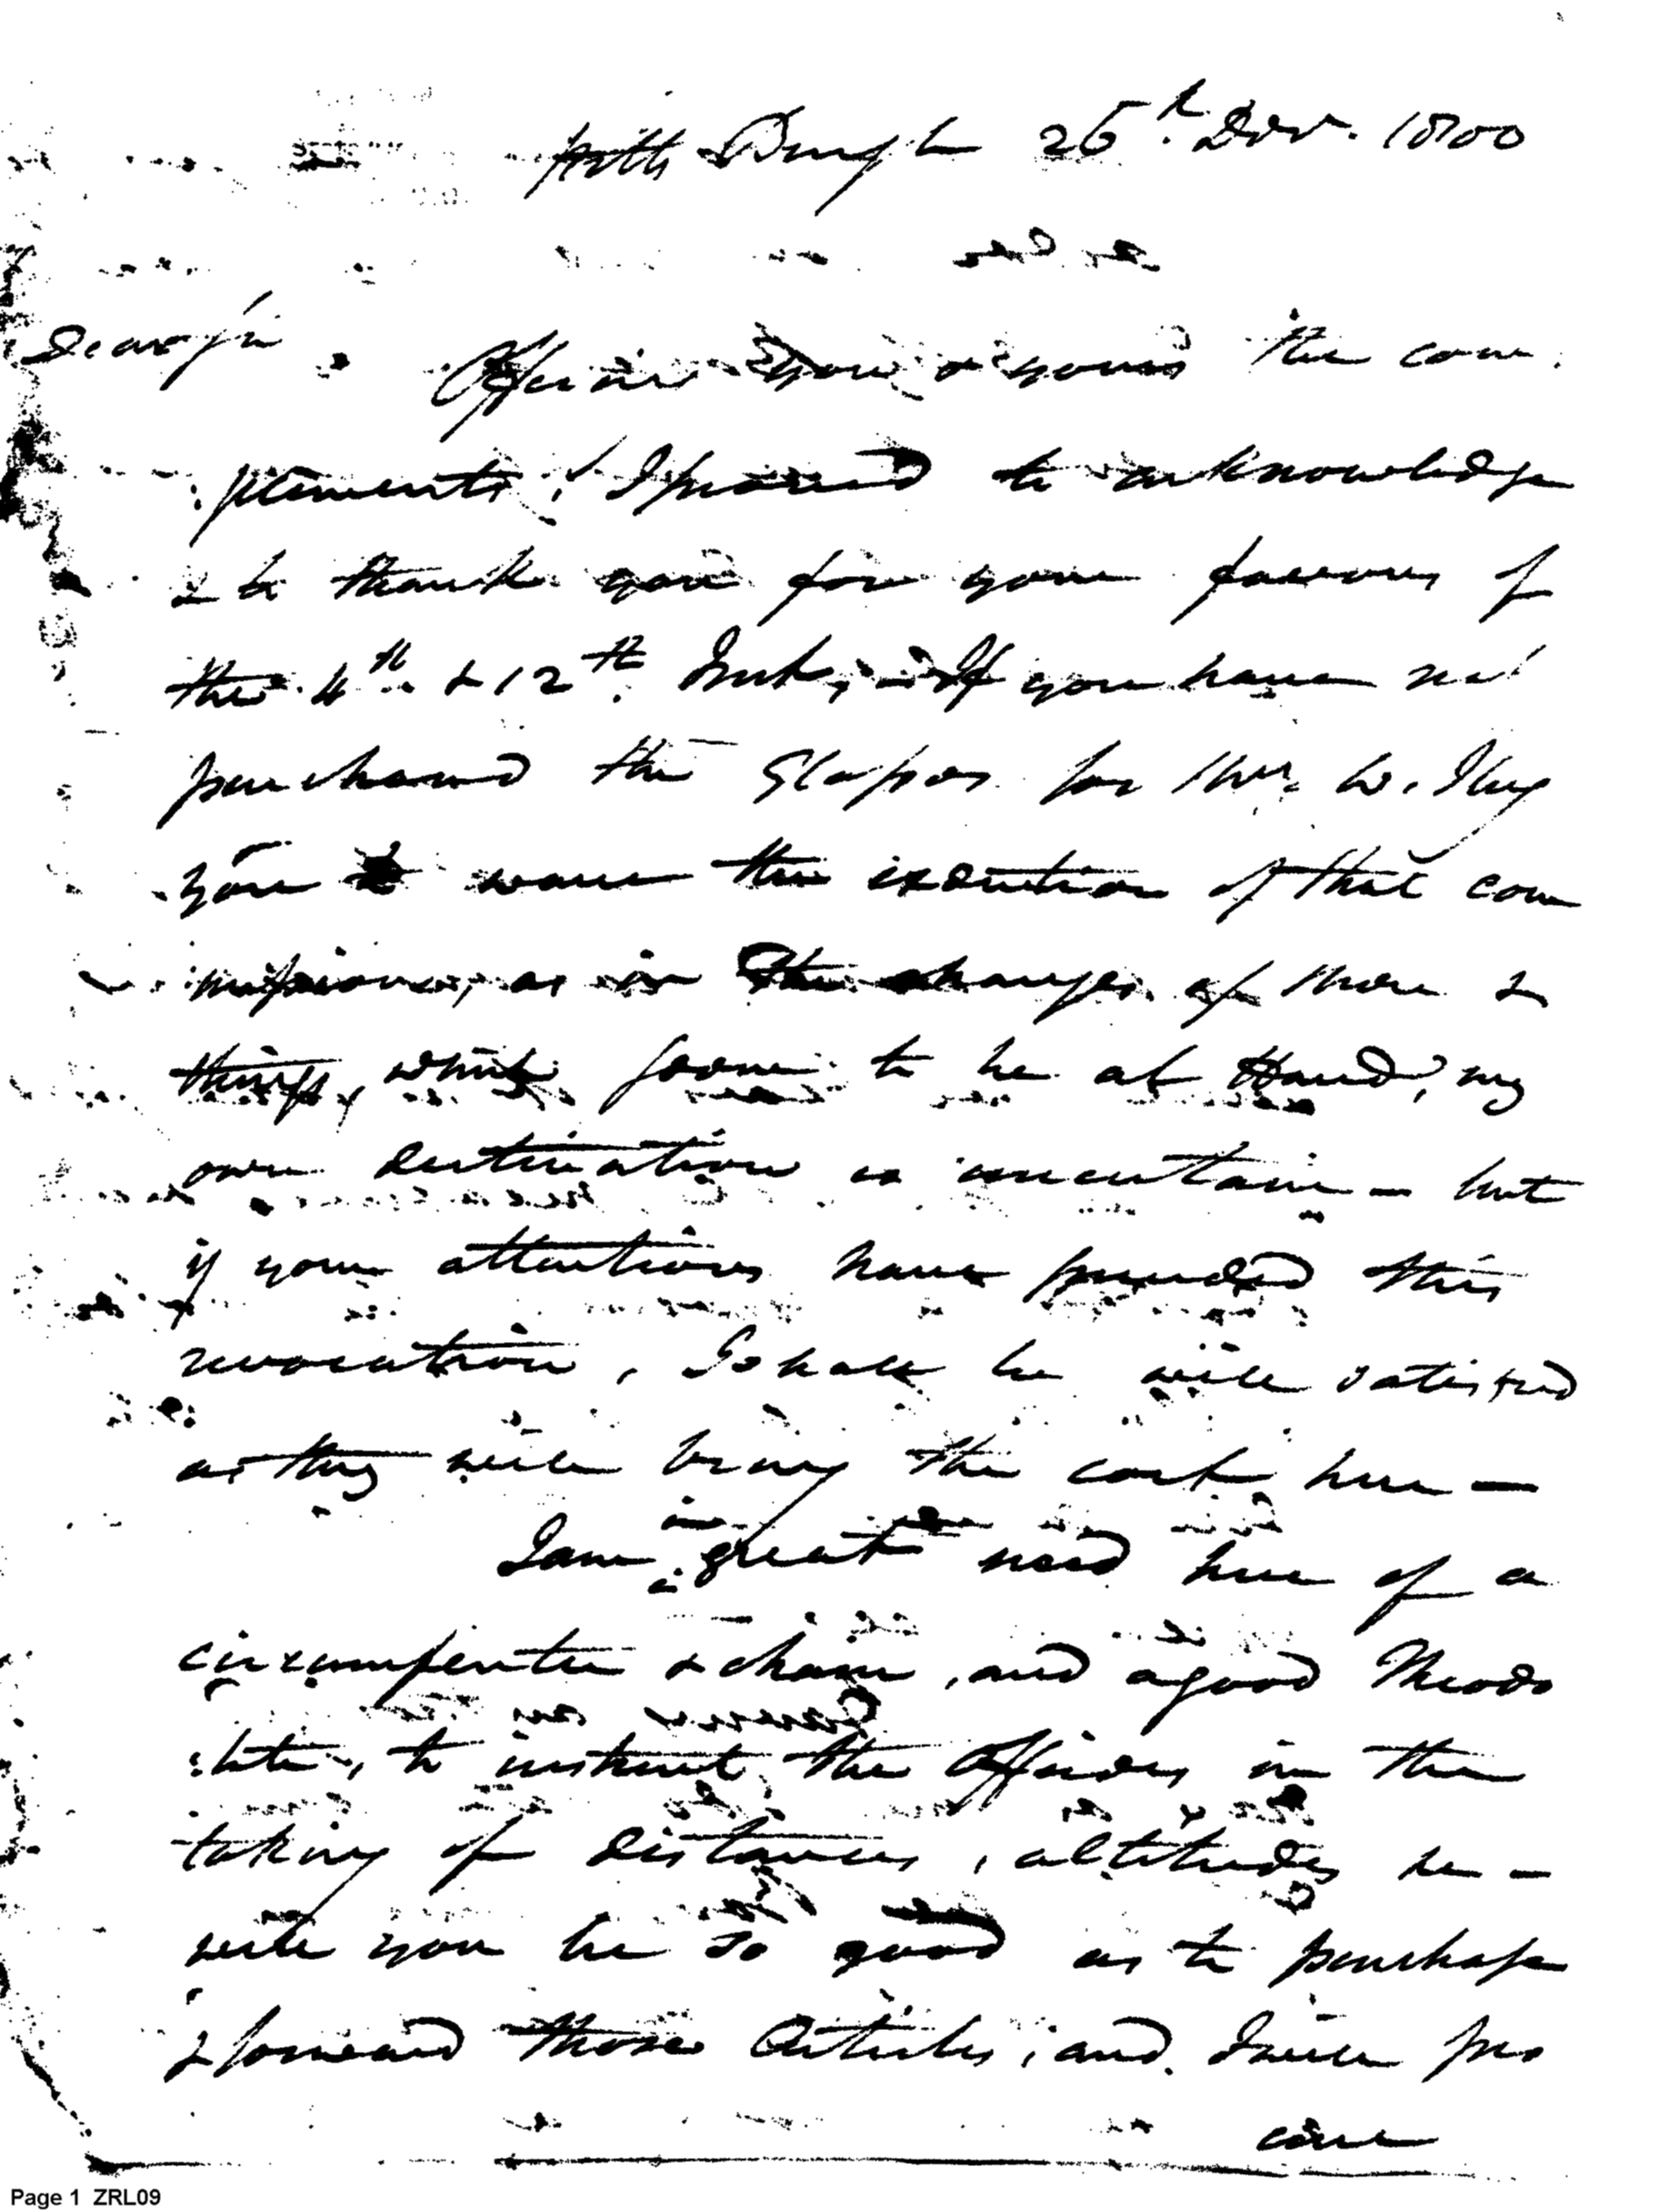 Pitts Burgh 25th Decr. 1800
Dear Sir
Offering you & yours the com
pliments, I proceed to acknowledge
& to thank you for your favours of
the 4th. & 12th. Inst, - If you have not
purchased the Glasses for Mr. W. Ilry
you wave the execution of that com
missions, as in the changes of Men &
things, which seem to be at Hand, my
own destination is uncertain - but
if your attentions have preceded this
revocation, I shall be well satisfied
as they will bring the cost here -
I am in great need here of a
circumferenter & chain, and a good Theodo
lite, to instruct the Officers in the
taking of distances, altitudes &c -
will you be so good as to purchase
& forward those Articles, and I will pro
cure
Page 1 ZRL09